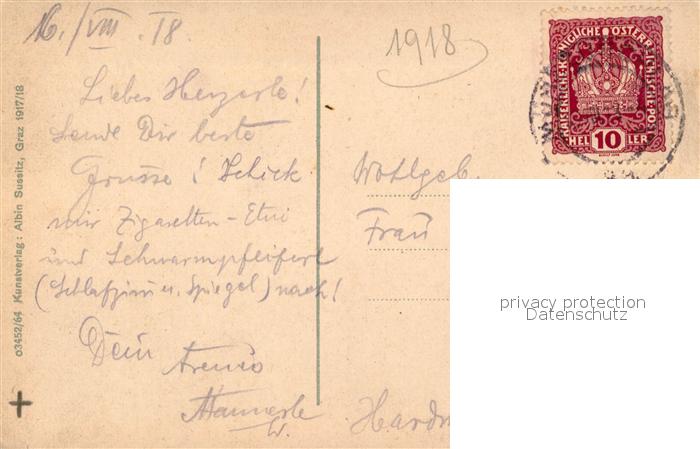 16./VIII. 18.
1918
Liebes Herzerle!
Sende Dir beste
Grüsse! Schick
mir Zigaretten-Etui
und
(Schlafzim u. Spiegel) nach!
Dein
Mannerle
Wohlgeb.
Frau
03452/64 Kunstverlag: Albin Sussitz, Graz 1917/18
KAISERLICHE KÖNIGLICHE ÖSTERREICHISCHE POST
HEL 10 LER
privacy protection
Datenschutz